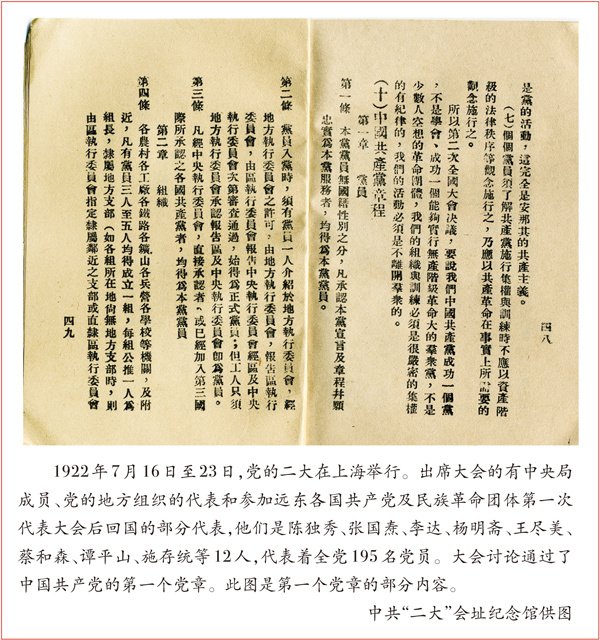 四八
是黨的活動，這完全是安那其的共產主義。
（七）個個黨員須了解共產黨施行集權與訓練時不應以資產階
級的法律秩序等觀念施行之，乃應以共產革命在事實上所需要的
觀念施行之。
所以第二次全國大會決議，要說我們中國共產黨成功一個黨
，不是學會、成功一個能夠實行無產階級革命大的羣衆黨，不是
少數人空想的革命團體，我們的組織與訓練必須是很嚴密的集權
的有紀律的，我們的活動必須是不離開羣衆的。
（十）中國共產黨章程
第一章　黨員
第一條　本黨黨員無國籍性別之分，凡承認本黨宣言及章程并願
忠實爲本黨服務者，均得爲本黨黨員。
第二條　黨員入黨時，須有黨員一人介紹於地方執行委員會，經
地方執行委員會之許可，由地方執行委員會，報告區執行
委員會，由區執行委員會報告中央執行委員會經區及中央
執行委員會次第審查通過，始得爲正式黨員；但工人只須
地方執行委員會承認報告區及中央執行委員會卽爲黨員。
第三條　凡經中央執行委員會，直接承認者、或已經加入第三國
際所承認之各國共產黨者，均得爲本黨黨員
第二章　組織
第四條　各農村各工廠各鐵路各鑛山各兵營各學校等機關，及附
近，凡有黨員三人至五人均得成立一組，每組公推一人爲
組長，隸屬地方支部（如各組所在地尙無地方支部時，則
由區執行委員會指定隸屬鄰近之支部或直隸區執行委員會
四九
1922年7月16日至23日,党的二大在上海举行。出席大会的有中央局
成员、党的地方组织的代表和参加远东各国共产党及民族革命团体第一次
代表大会后回国的部分代表,他们是陈独秀、张国焘、李达、杨明斋、王尽美、
蔡和森、谭平山、施存统等12人,代表着全党195名党员。大会讨论通过了
中国共产党的第一个党章。此图是第一个党章的部分内容。
中共“二大”会址纪念馆供图